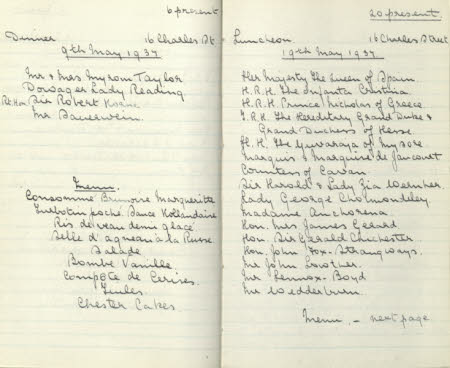 6 present
Dinner 16 Charles St
9th May 1937
Mr & Mrs Myron Taylor
Dowager Lady Reading
Rt. Hon. Sir Robert Horne
Mr. Bauerwein.
Menu.
Consommé Brunoise Marguerite
Turbotin poché. Sauce Hollandaise
Ris de veau demi glacé
Selle d'agneau à la Russe
Salade
Bombe Vanille
Compôte de Cerises.
Tuiles
Chester Cakes.
20 present.
Luncheon 16 Charles Street
19th May 1937
Her Majesty The Queen of Spain
H.R.H. The Infanta Cristina
H.R.H Prince Nicholas of Greece
T.R.H. The Hereditary Grand Duke &
Grand Duchess of Hesse
H.H. The Yuvaraja of Mysore
Marquis & Marquise de Jaucourt
Countess of Cavan
Sir Harold & Lady Zia Wernher.
Lady George Cholmondeley
Madame Anchorena
Hon. Mrs James Gerard
Hon. Sir Gerald Chichester
Hon. John Fox-Strangways.
Mr John Lowther
Mr Lennox-Boyd
Mr Wedderburn
Menu - next page